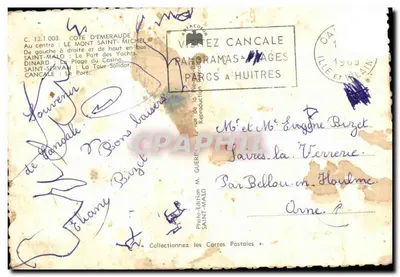 C. 12.1 003. CÔTE D'EMERAUDE
Au centre : LE MONT SAINT-MICHEL
De gauche à droite et de haut en bas
SAINT-MALO : Le Port des Yachts.
DINARD : La Plage du Casino.
SAINT-SERVAN : La Tour Solidor
CANCALE : Le Port.
VISITEZ CANCALE
PANORAMAS PLAGES
PARCS A HUITRES
1963
ILLE ET VILAINE
Souvenir
de Cancale
Bons baisers
Eliane Bizet
Photo-Edition M. GUERIN
SAINT-MALO
Reproduction
Mr et Mme Eugène Bizet
La Verrerie
Par Bellou-en-Houlme
Orne
« Collectionnez les Cartes Postales »
Delcampe